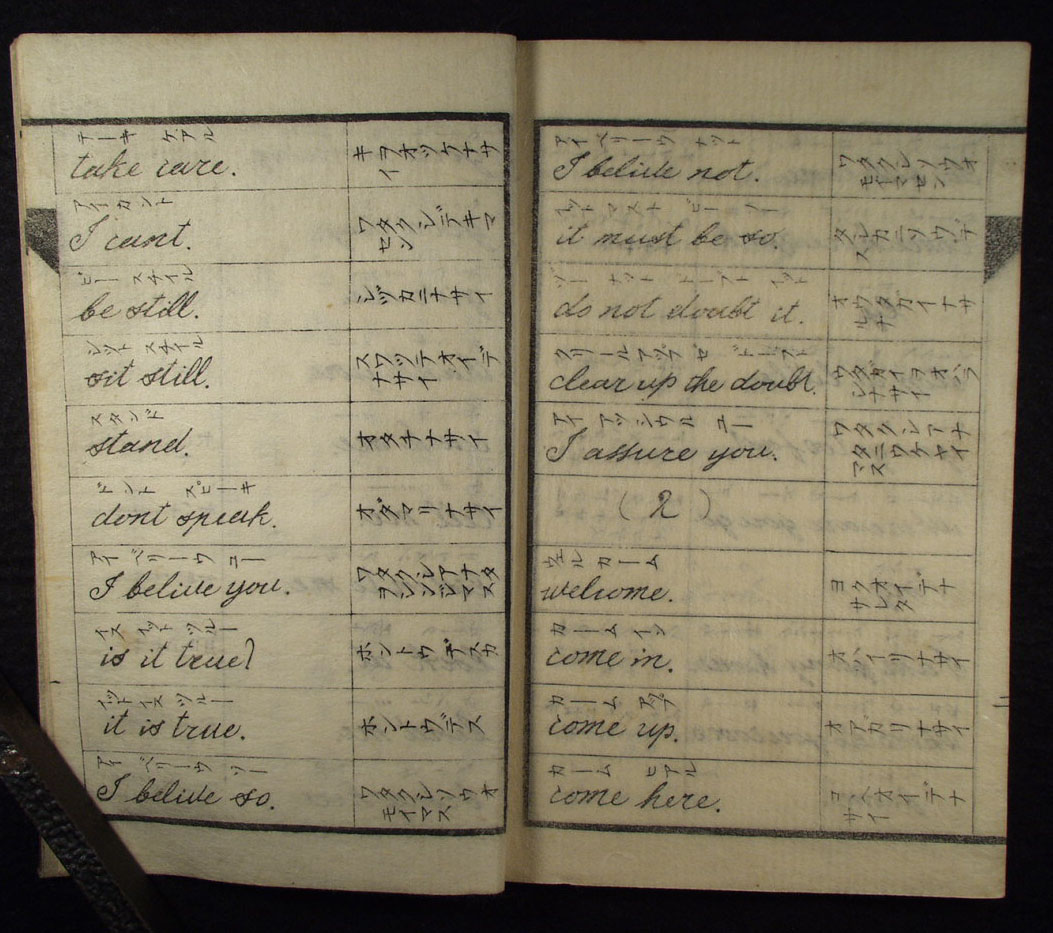 テーキ ケアル
take care.
キヲオツケナサ
イ
アイカント
I cant.
ワタクシデキマ
セン
ビー スチイル
be still.
シヅカニナサイ
シット スチイル
sit still.
スワッテオイデ
ナサイ
スタンド
stand.
オタチナサイ
ドント スピーキ
dont speak.
オダマリナサイ
アイ ベリーウ ユー
I belive you.
ワタクシアナタ
ヲシンジマス
イズ イット ツルー
is it true?
ホントウデスカ
イット イズ ツルー
it is true.
ホントウデス
アイ ベリーウ ソー
I belive so.
ワタクシソウオ
モイマス
アイ ベリーウ ナット
I belive not.
ワタクシソウオ
モイマセン
イット マスト ビー ソー
it must be so.
タシカニソウデ
ス
ヅー ナット ドーブト イット
do not doubt it.
オウタガイナサ
ルナ
クリール アップ ゼ ドーブト
clear up the doubt.
ウタガイヲオハラ
シナサイ
アイ アッシウル ユー
I assure you.
ワタクシアナ
タニウケヤイ
マス
( 2 )
ウエル カーム
welcome.
ヨクオイデナ
サレタ
カーム イン
come in.
オハイリナサイ
カーム アップ
come up.
オアガリナサイ
カーム ヒアル
come here.
コヽヘオイデナ
サイ